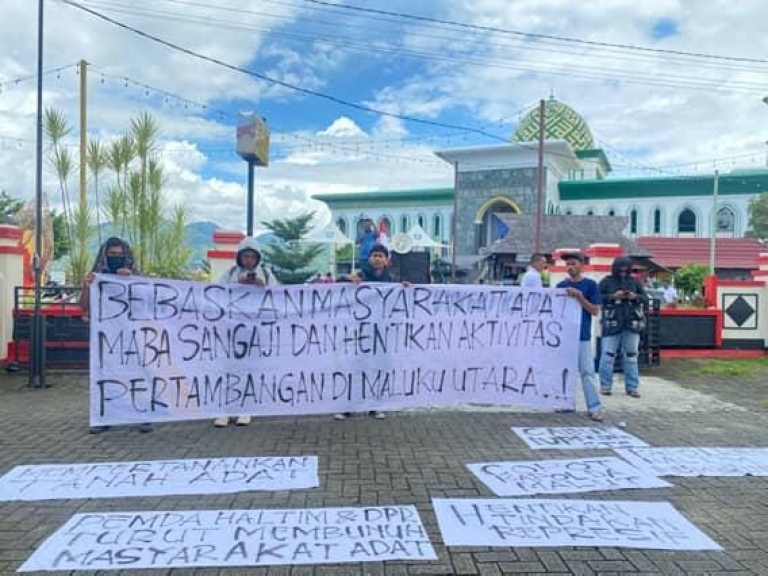 BEBASKAN MASYARAKAT ADAT
MABA SANGAJI DAN HENTIKAN AKTIVITAS
PERTAMBANGAN DI MALUKU UTARA..!
MEMPERTANANKAN
TANAH ADAT
PEMDA HALTIM & DPD
TURUT MEMBUNUH
MASYARAKAT ADAT
HENTIKAN
TINDAKAN
REPRESIF
COPOT